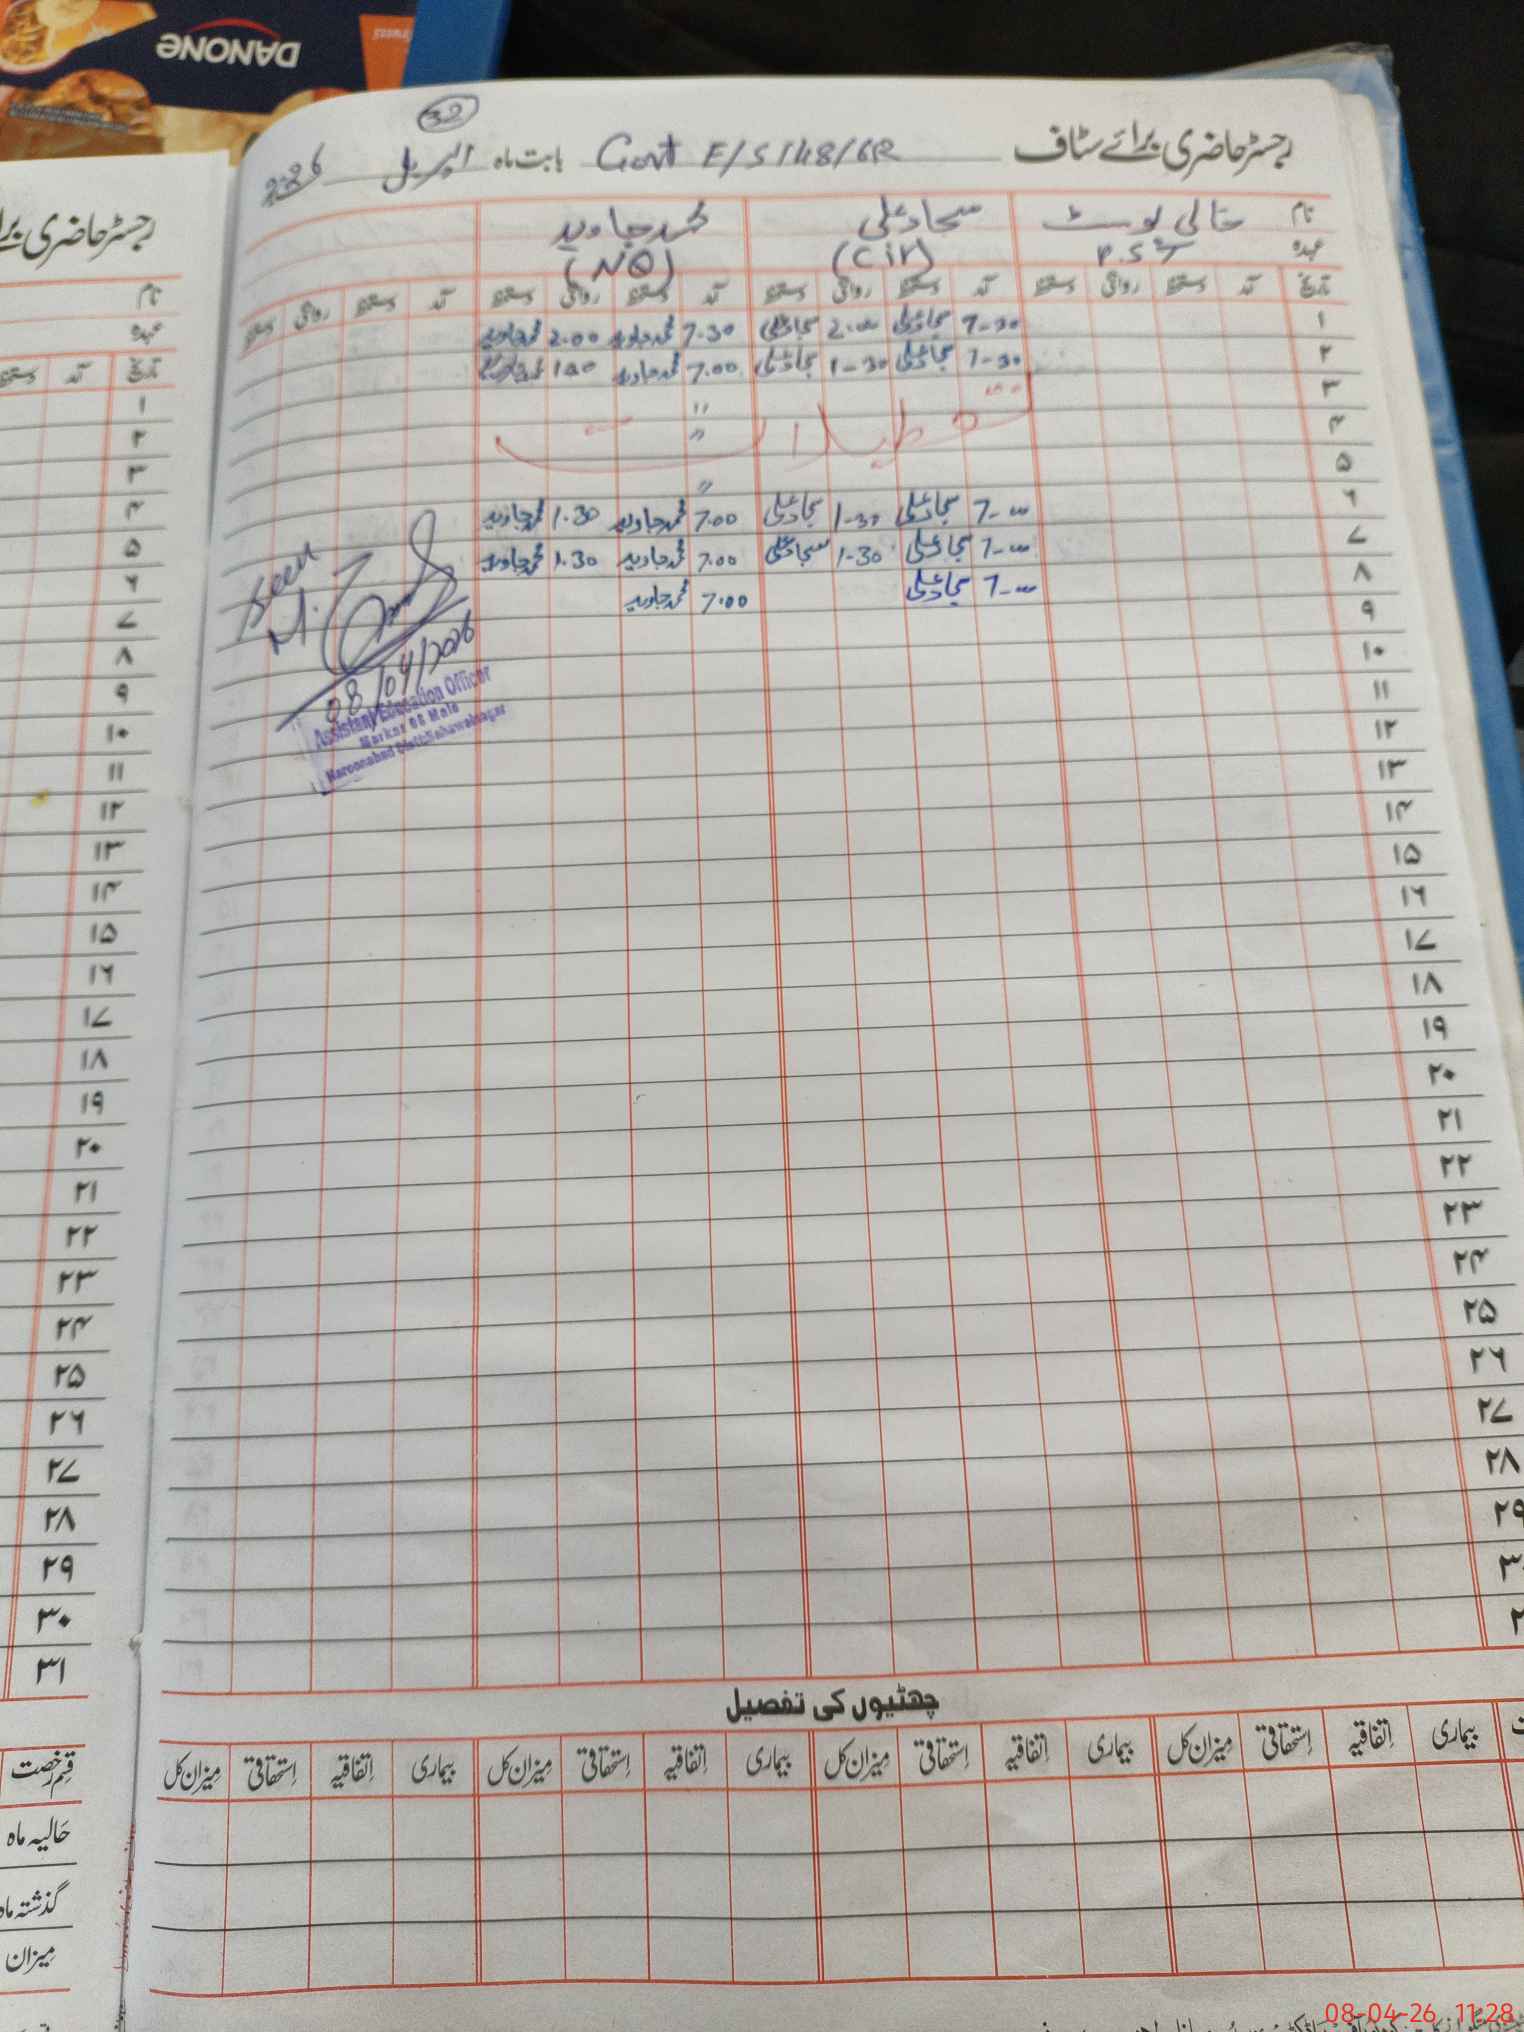 DANONE
32
رجسٹر حاضری برائے سٹاف Govt E/S 148/6R بابت ماہ اپریل 2026
نام خالی پوسٹ سجاد علی محمد جاوید
عہدہ P.S.T (CIV) (NQ)
تاریخ آمد دستخط روانگی دستخط آمد دستخط روانگی دستخط آمد دستخط روانگی دستخط آمد دستخط روانگی دستخط
۱ 7-30 سجاد علی 2.00 سجاد علی 7.30 محمد جاوید 2.00 محمد جاوید
۲ 7-30 سجاد علی 1-30 سجاد علی 7.00 محمد جاوید محمد جاوید
۳ "
۴ تعطیلات "
۵ "
۶ 7-00 سجاد علی 1-30 سجاد علی 7.00 محمد جاوید 1.30 محمد جاوید
۷ 7-00 سجاد علی 1-30 سجاد علی 7.00 محمد جاوید 1.30 محمد جاوید
۸ 7-00 سجاد علی 7.00 محمد جاوید
۹
۱۰
۱۱
۱۲
۱۳
۱۴
۱۵
۱۶
۱۷
۱۸
۱۹
۲۰
۲۱
۲۲
۲۳
۲۴
۲۵
۲۶
۲۷
۲۸
۲۹
۳۰
Seen
08/04/2026
Assistant Education Officer
Markaz 66 Male
Haroonabad Distt:Bahawalnagar
چھٹیوں کی تفصیل
بیماری اتفاقیہ استحقاقی میزان کل بیماری اتفاقیہ استحقاقی میزان کل بیماری اتفاقیہ استحقاقی میزان کل بیماری اتفاقیہ استحقاقی میزان کل
رجسٹر حاضری
نام
عہدہ
تاریخ آمد دستخط
۱
۲
۳
۴
۵
۶
۷
۸
۹
۱۰
۱۱
۱۲
۱۳
۱۴
۱۵
۱۶
۱۷
۱۸
۱۹
۲۰
۲۱
۲۲
۲۳
۲۴
۲۵
۲۶
۲۷
۲۸
۲۹
۳۰
۳۱
قسم رخصت
حالیہ ماہ
گذشتہ ماہ
میزان
08-04-26 11:28